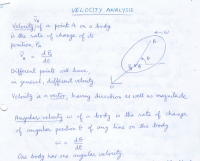 VELOCITY ANALYSIS
Velocity of a point A on a body
is the rate of change of its
position, r_A
V_A = d r_A / dt
Different points will have,
in general, different velocity.
Velocity is a vector, having direction as well as magnitude.
Angular velocity ω of a body is the rate of change
of angular position θ of any line on the body
ω = dθ / dt
One body has one angular velocity.